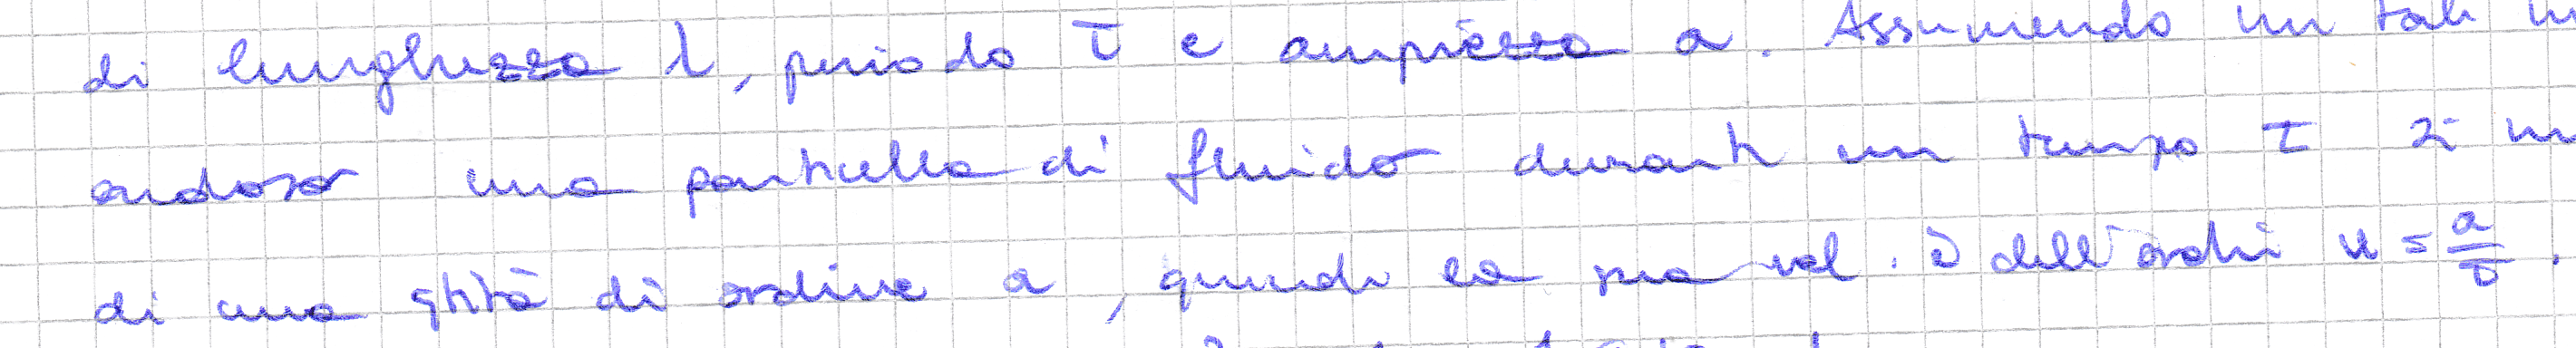 di lunghezza λ, periodo τ e ampiezza a. Assumendo un tale
ondoso una particella di fluido durante un tempo τ si
di una qtità di ordine a, quindi la sua vel. è dell'ordine u = a/τ.